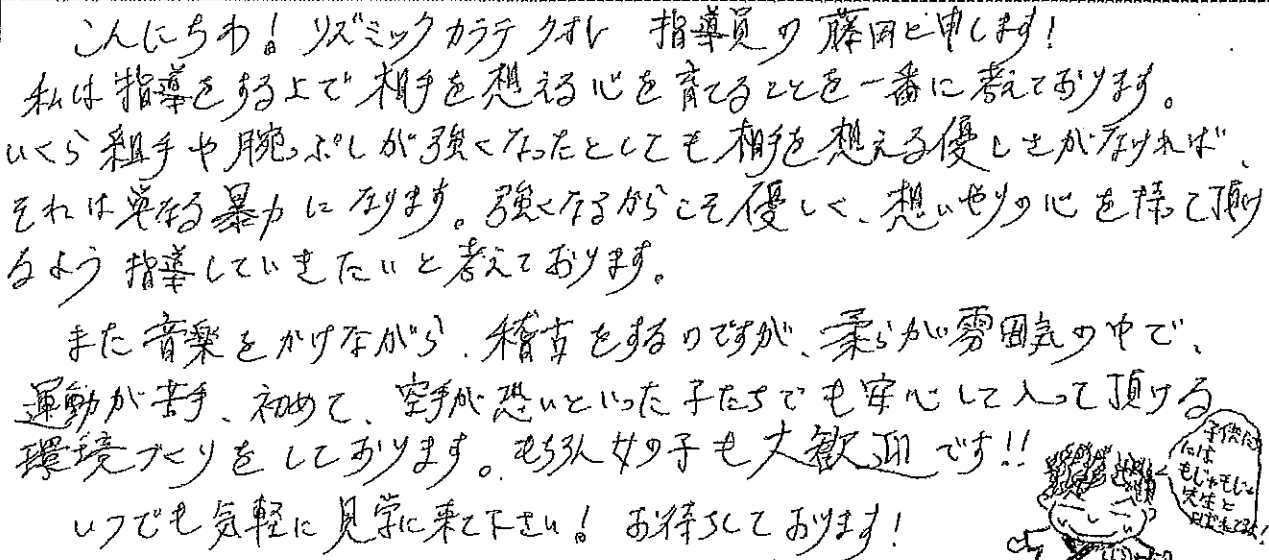 こんにちわ！リズミックカラテクオレ 指導員の藤田と申します！
私は指導をする上で相手を想える心を育てることを一番に考えております。
いくら組手や腕っぷしが強くなったとしても相手を想える優しさがなければ、
それは単なる暴力になります。強くなるからこそ優しく、想いやりの心を持って頂け
るよう指導していきたいと考えております。
また音楽をかけながら、稽古をするのですが、柔らかい雰囲気の中で、
運動が苦手、初めて、空手が恐いといった子たちでも安心して入って頂ける
環境づくりをしております。もちろん女の子も大歓迎です!!
いつでも気軽に見学に来て下さい！お待ちしております！
子供に
には
もじゃもじゃ
先生と
よばれてるよ！